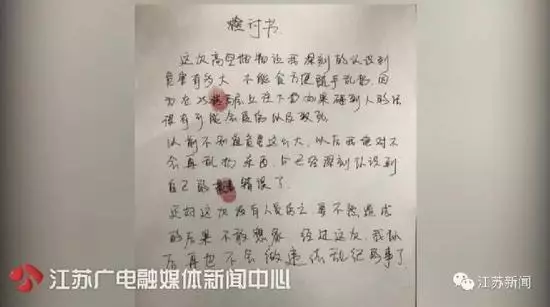 检讨书
这次高空抛物让我深刻的认识到
危害有多大 不能贪方便随手乱扔,因
为在25楼 上往下扔如果砸到人的话
很有可能会 以及致死
以前不知道危害这么大,以后我绝对不
会再乱扔东西,已经深刻认识到
自己的 错误了.
还好这次没有人员伤亡 要不然造成
的后果 不敢想象 经过这次,我以
后再也不会做违法乱纪的事了
江苏广电融媒体新闻中心
江苏新闻